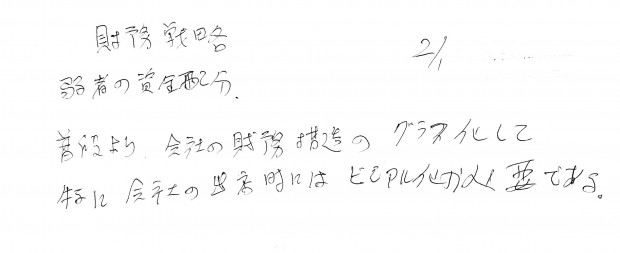 財務戦略
2/1
弱者の資金配分.
普段より 会社の財務構造の グラフ化して
特に 会社の 時には ビジアル化が必要である。